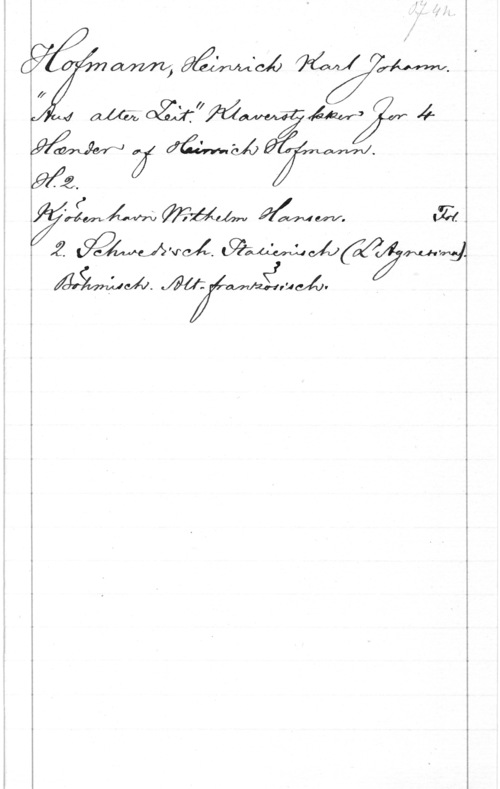 Hofmann, Heinrich Karl Johann.
"Aus alter Zeit." Klaverstykker for 4
Hænder af Heinrich Hofmann.
H. 2.
Kjöbenhavn Wilhelm Hansen. Fol.
2. Schwedisch. Italienisch (L'Agnesina).
Böhmisch. Alt-französisch.